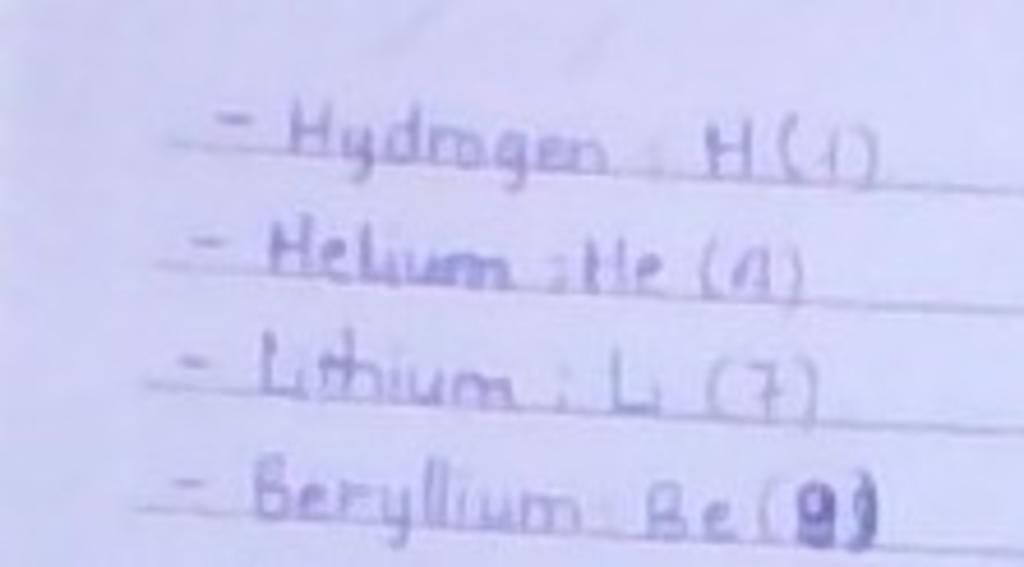 - Hydrogen : H (1)
- Helium : He (4)
- Lithium : Li (7)
- Beryllium : Be (9)